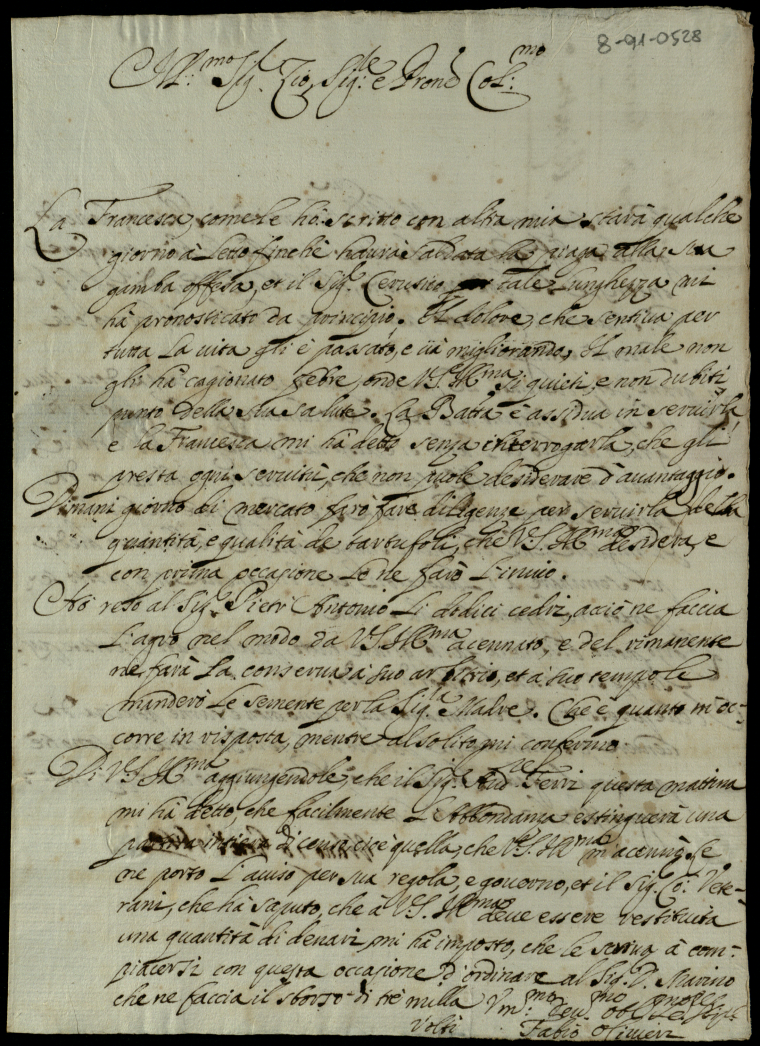 8-91-0528
Ill:mo Sig. Zio, Sig:re e Pron Col:mo
La Francesca, come le hò scritto con altra mia starà qualche
giorno à letto finche haverà saldata la piaga alla sua
gamba offesa, et il Sig. Cerusico tale lunghezza mi
hà pronosticato da principio. Il dolore, che sentiva per
tutta la vita gli è passato, e và migliorando, Il male non
gli hà cagionato febre, onde V.S. Ill.ma si quieti, e non dubiti
punto della sua salute. La Batta è assidua in servirla
e la Francesca mi hà detto senza interrogarla, che gli
presta ogni servitù, che non puole desiderare d'avantaggio.
Dimani giorno di mercato farò fare diligenze per servirla della
quantità, e qualità de tartufoli, che V.S. Ill.ma desidera, e
con prima occasione le ne farò l'invio.
Hò reso al Sig. Pietr' Antonio li dodici cedri, acciò ne faccia
l'agro nel modo da V.S. Ill.ma acennato, e del rimanente
ne farà la conserva à suo arbitrio, et à suo tempo le
manderò le semente per la Sig.ra Malve. Che è quanto m'oc=
corre in risposta, mentre al solito mi confermo
Di V.S. Ill.ma aggiungendole, che il Sig. Ferri questa mattina
mi hà detto, che facilmente l'Abbondanza estinguerà una
partita intiera di censi, cioè quella, che V.S. Ill.ma m'acennò, se
ne porto l'aviso per sua regola, e governo, et il Sig. Co: Vete=
rani, che hà saputo, che à V.S. Ill.ma deve essere restituita
una quantità di denari, mi hà imposto, che le scriva à com=
piacersi con questa occasione d'ordinare al Sig. D. Marino
che ne faccia il sborso di trè milla
Volti Fabio Olivieri